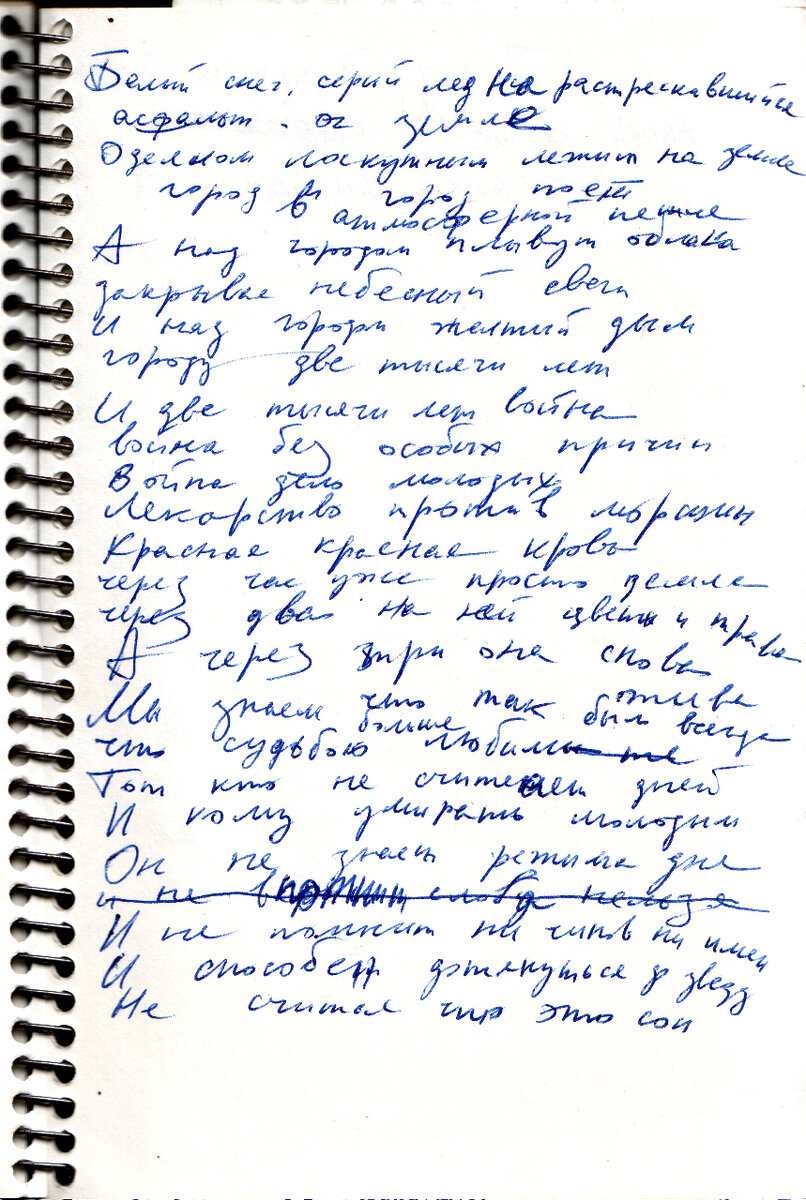 Белый снег, серый лед на растрескавшийся
асфальт. ог земле
Одеялом лоскутным лежит на земле
город и город поет
в атмосферной петле
А над городом плывут облака
закрывае небесный свет
И над городм желтый дым
городу две тысячи лет
И две тысячи лет война
война без особых причин
Война дело молодых
Лекарство против морщин
Красная красная кровь
через час уже просто земля
через два на ней цветы и трава
А через три она снова
жива
Мы знаем что так было всегда
больше
что судьбою любим
Тот кто не считает дней
И кому умирать молодым
Он не знает режима дня
и не слова нельзя
И не помнит ни чинов ни имен
И способен дотянуться до звезд
Не считая что это сон